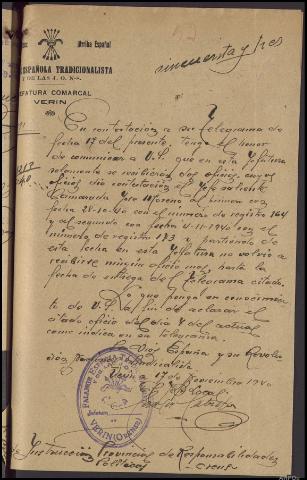 Arriba España!
cincuenta y tres
ESPAÑOLA TRADICIONALISTA
Y DE LAS J. O. N-S.
JEFATURA COMARCAL
VERIN
En contestación a su telegrama de
fecha 17 del presente, tengo el honor
de comunicar a V.S. que en esta Jefatura
solamente se recibieron dos oficios, cuyos
oficios dio contestación el Jefe saliente
Camarada Moreno el primero con
fecha 28-10-40 con el numero de registro 164
y el segundo con fecha 4-11-1940 con el
número de registro 173 y partiendo de
esta fecha en esta Jefatura no volvió a
recibirse ningún oficio mas, hasta la
fecha de entrega del telegrama citado.
Lo que pongo en conocimien
to de V.S. a fin de aclarar el
citado oficio del día 4 del actual
como indica en su telegrama.
Por Dios España y su Revolu
ción Nacional Sindicalista
Verin 17 de Noviembre 1940
El Jefe Local
VERIN (ORENSE)
Instrucción Provincial de Responsabilidades
Políticas
Orense